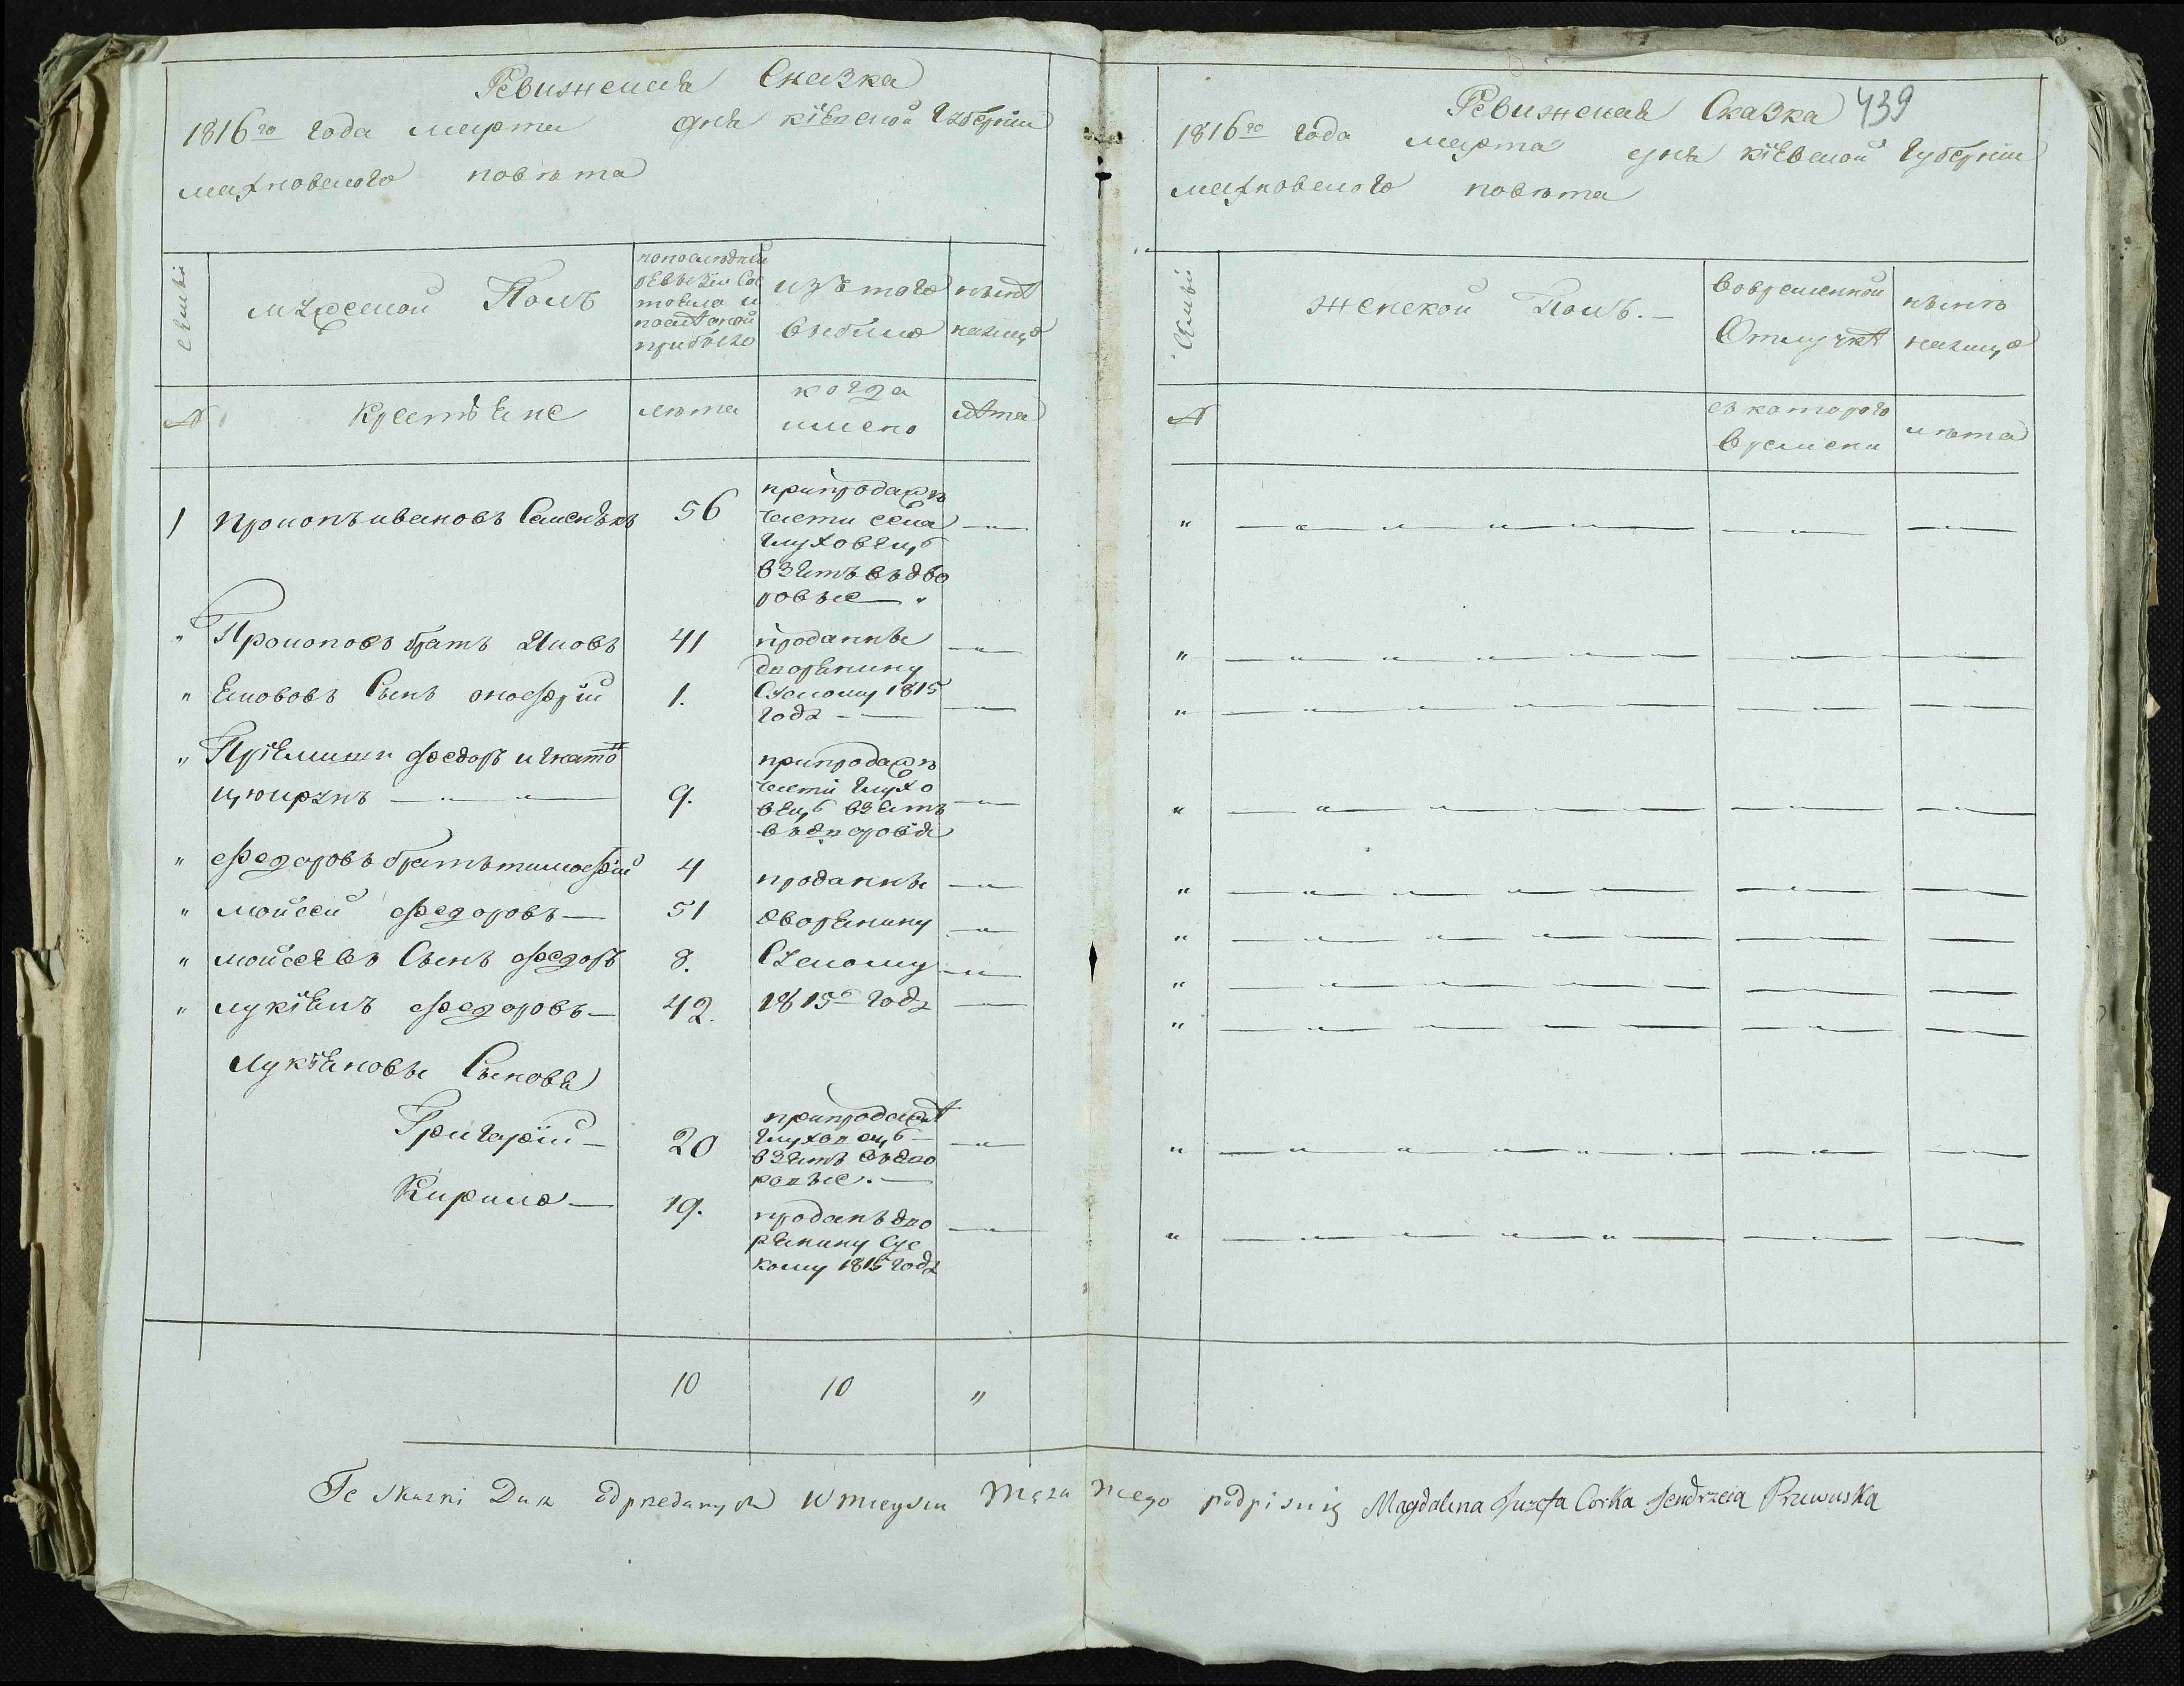 Ревижская Сказка
1816го года марта дня кіевской Губерніи
махновского повѣта
Семьи
мужеской Полъ
попоследней
ревѣзіи Сос
тояло и
после оной
прибыло
изъ того
выбыло
нынѣ
налицо
№
Крестьяне
лѣта
когда
имено
лѣта
1 Прокопъ ивановъ 56
припродажѣ
части села
глуховецъ
взятъ въ дво
ровые
" Прокоповъ братъ Яковъ 41
проданны
дворянину
" Якововъ Сынъ онофрій 1.
1815
года
" Пріемыши федоръ игнато 9.
припродажѣ
части глухо
вецъ взятъ
въ дворовые
" федоровъ братъ тимофій 4 проданны
" мойсей федоровъ 51 дворянину
" мойсеевъ Сынъ федоръ 8.
" лукіянъ федоровъ 42. 1815го года
лукіяновы Сыновя
Григорій 20
припродажѣ
глуховецъ
взятъ въ дво
ровые.
Кирило 19.
проданъ дво
рянину Сус
кому 1815 года
10 10 "
Ревижская Сказка 439
1816го года марта дня кіевской Губерніи
махновского повѣта
Семьи
женской Полъ.
вовременной
Отлучкѣ
нынѣ
налицо
№
съ которого
времени
лѣта
Te skazki w mieyscu Męża mego podpisuię Magdalena Juzefa Corka Jendrzeia Pruwuska